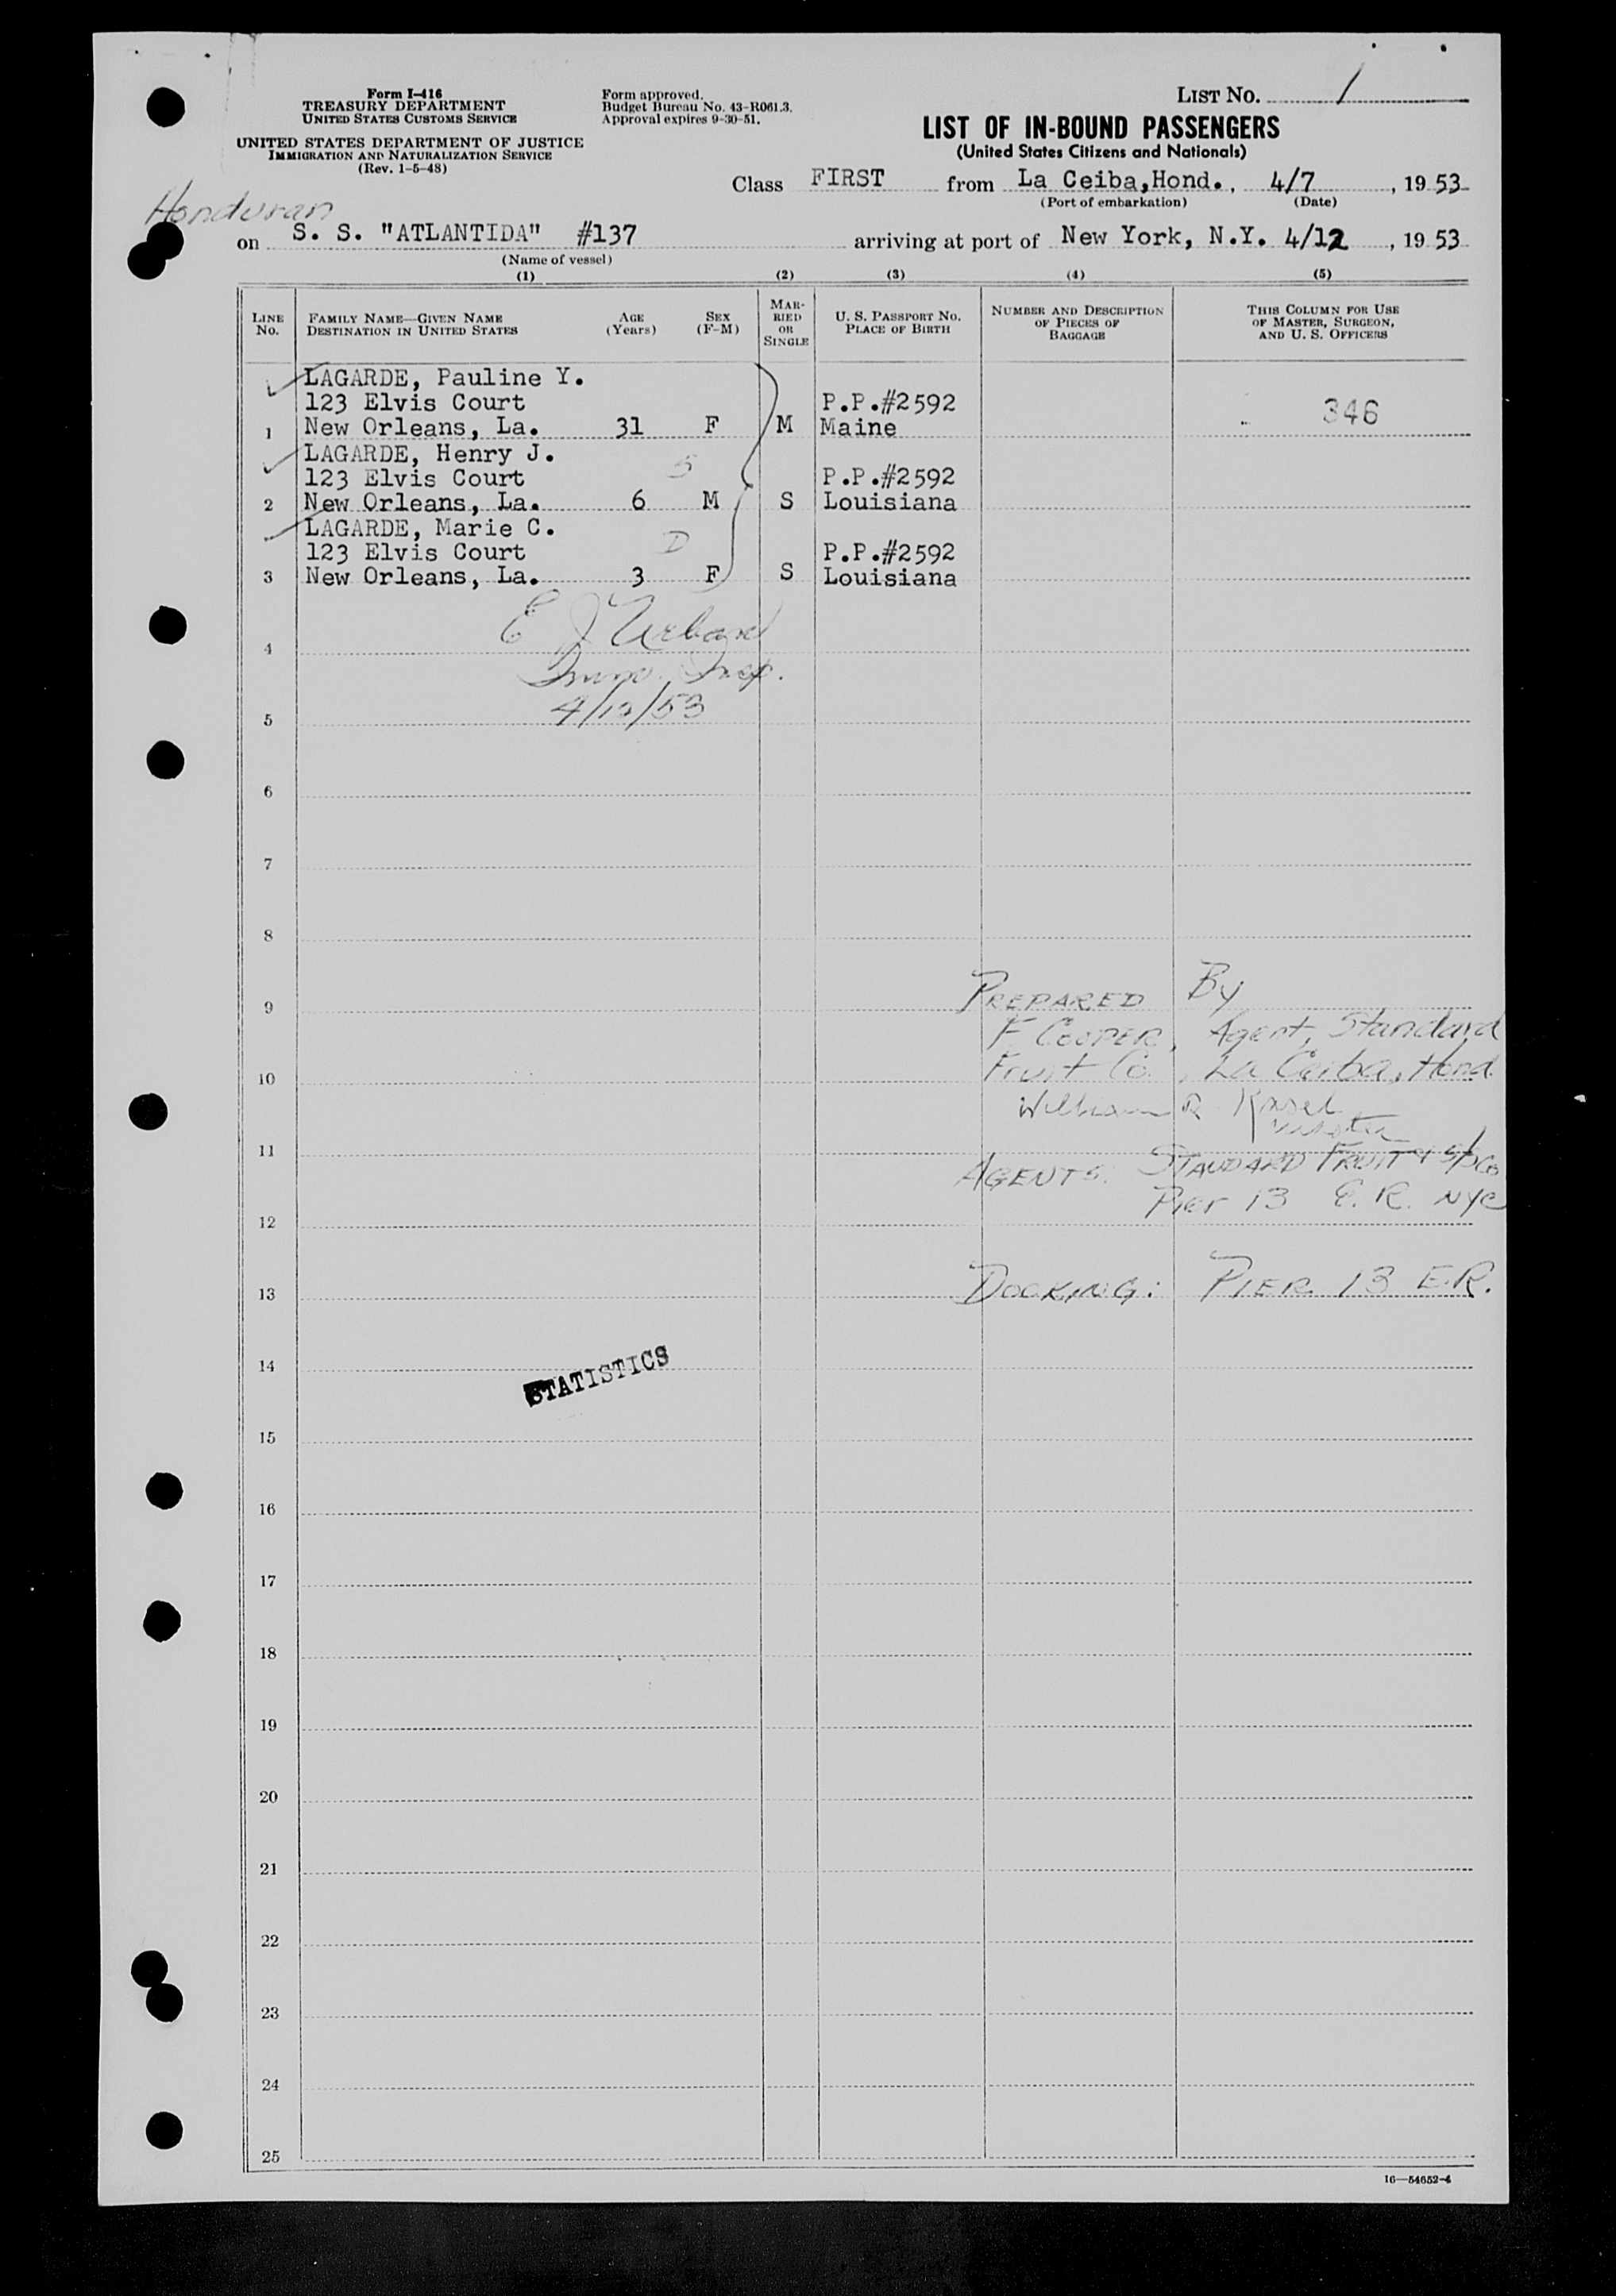 Form I-416
TREASURY DEPARTMENT
UNITED STATES CUSTOMS SERVICE
UNITED STATES DEPARTMENT OF JUSTICE
IMMIGRATION AND NATURALIZATION SERVICE
(Rev. 1-5-48)
Form approved.
Budget Bureau No. 43-R061.3.
Approval expires 9-30-51.
LIST NO. 1
LIST OF IN-BOUND PASSENGERS
(United States Citizens and Nationals)
Class FIRST from La Ceiba, Hond., 4/7, 1953
(Port of embarkation) (Date)
Honduran
on S. S. "ATLANTIDA" #137 arriving at port of New York, N.Y. 4/12, 1953
(Name of vessel)
(1) (2) (3) (4) (5)
LINE NO. FAMILY NAME—GIVEN NAME DESTINATION IN UNITED STATES AGE (Years) SEX (F-M) MARRIED OR SINGLE U. S. PASSPORT NO. PLACE OF BIRTH NUMBER AND DESCRIPTION OF PIECES OF BAGGAGE THIS COLUMN FOR USE OF MASTER, SURGEON, AND U. S. OFFICERS
LAGARDE, Pauline Y.
123 Elvis Court P.P.#2592 346
1 New Orleans, La. 31 F M Maine
LAGARDE, Henry J.
123 Elvis Court S P.P.#2592
2 New Orleans, La. 6 M S Louisiana
LAGARDE, Marie C.
123 Elvis Court D P.P.#2592
3 New Orleans, La. 3 F S Louisiana
E J Urband
4
Imm. Insp.
4/12/53
5
6
7
8
PREPARED By
9
F COOPER, Agent, Standard
Fruit Co., La Ceiba, Hond.
10
William R.
master
11
AGENTS: STANDARD FRUIT & S/S Co
Pier 13 E.R. NYC
12
DOCKING: PIER 13 E.R.
13
14
STATISTICS
15
16
17
18
19
20
21
22
23
24
25
16—54652-4